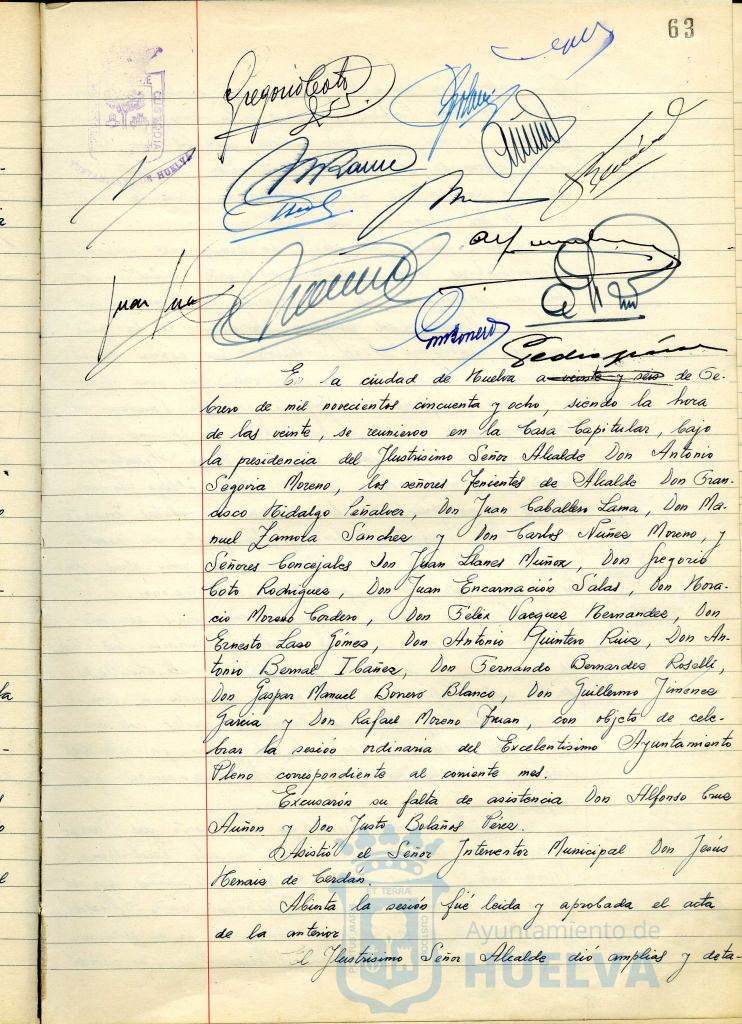 63
Gregorio Coto
Juan
Bonero
Pedro
En la ciudad de Huelva a veinte y seis de Fe-
brero de mil novecientos cincuenta y ocho, siendo la hora
de las veinte, se reunieron en la Casa Capitular, bajo
la presidencia del Ilustrisimo Señor Alcalde Don Antonio
Segovia Moreno, los señores Tenientes de Alcalde Don Fran-
cisco Hidalgo Peñalver, Don Juan Caballero Lama, Don Ma-
nuel Zamora Sánchez y Don Carlos Núñez Moreno, y
Señores Concejales Don Juan Llanes Muñoz, Don Gregorio
Coto Rodriguez, Don Juan Encarnación Salas, Don Hora-
cio Moreno Cordero, Don Félix Vazquez Hernandez, Don
Ernesto Laso Gómez, Don Antonio Quintero Ruiz, Don An-
tonio Bernal Ibañez, Don Fernando Bernardez Roselli,
Don Gaspar Manuel Bonero Blanco, Don Guillermo Jimenez
Garcia y Don Rafael Moreno, con objeto de cele-
brar la sesión ordinaria del Excelentisimo Ayuntamiento
Pleno correspondiente al corriente mes.
Excusarón su falta de asistencia Don Alfonso Cruz
Auñon y Don Justo Bolaños Pérez.
Asistió el Señor Interventor Municipal Don Jesús
de Cerdan.
Abierta la sesión fué leida y aprobada el acta
de la anterior
El Ilustrisimo Señor Alcalde dió amplias y deta-
Ayuntamiento de
HUELVA